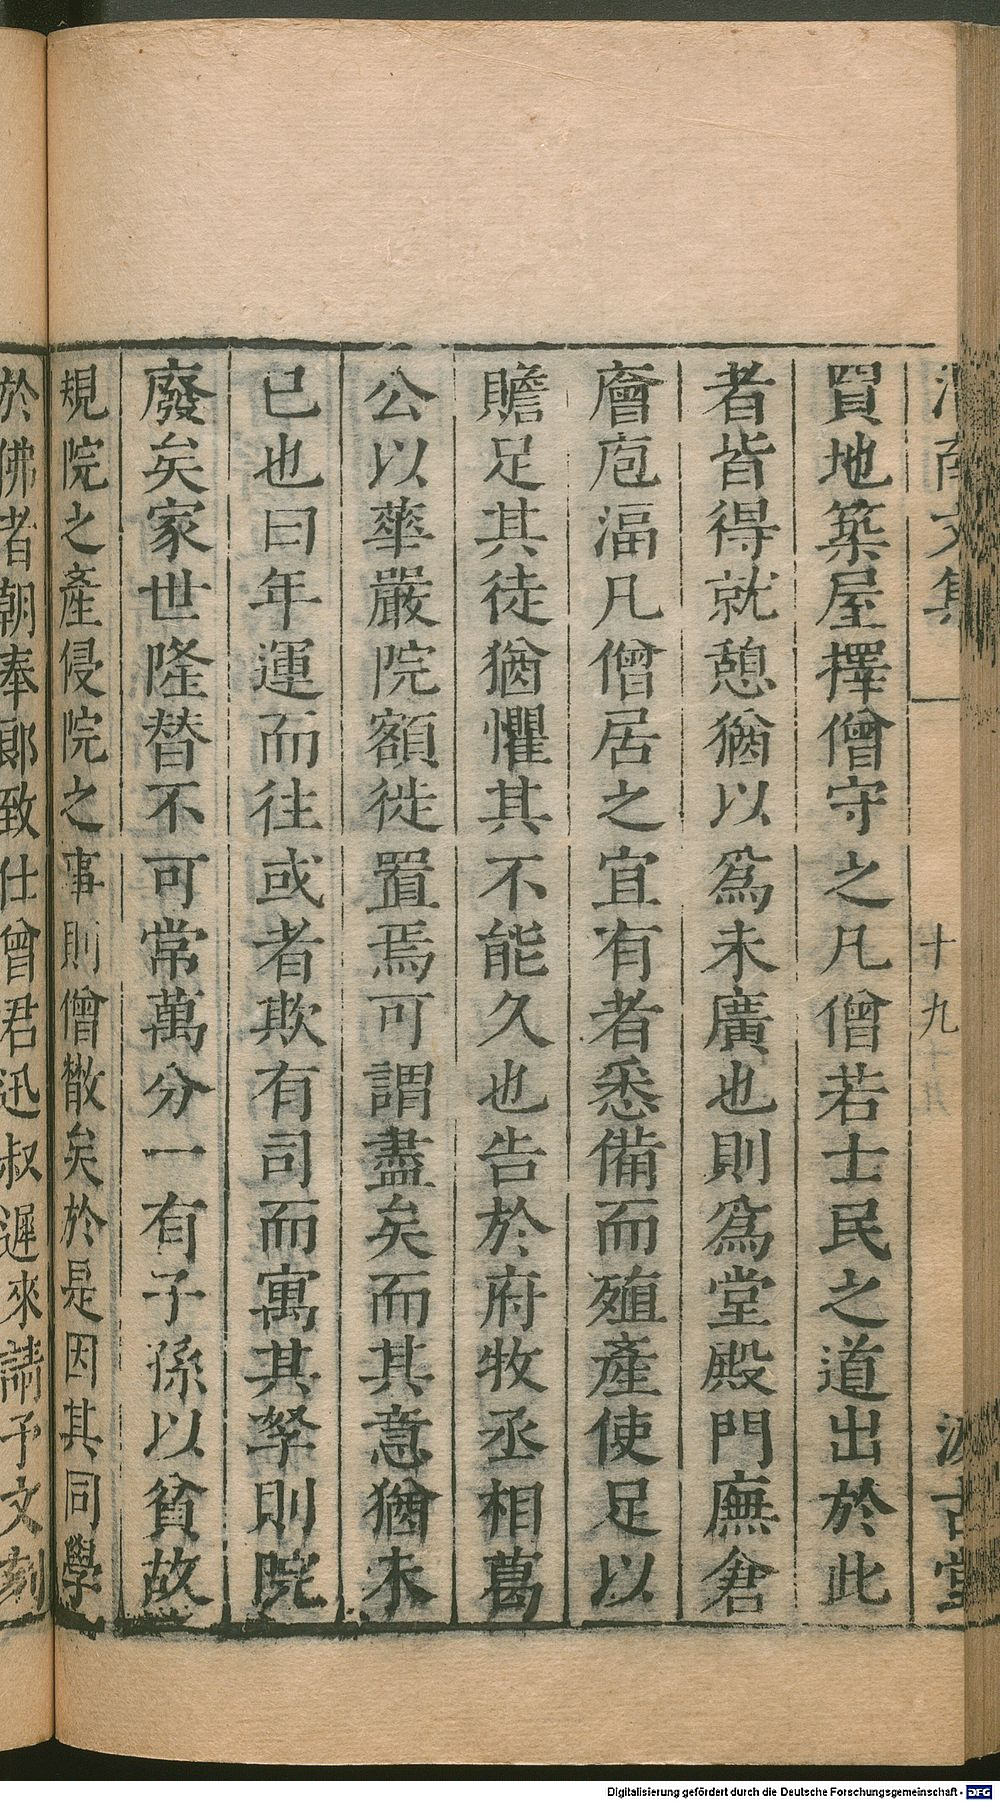 渭南文集
十九
汲古堂
買地築屋擇僧守之凡僧若士民之道出於此
者皆得就憩猶以爲未廣也則爲堂殿門廡倉
廥庖湢凡僧居之宜有者悉備而殖產使足以
贍足其徒猶懼其不能久也告於府牧丞相葛
公以華嚴院額徙置焉可謂盡矣而其意猶未
已也曰年運而往或者欺有司而寓其孥則院
廢矣家世隆替不可常萬分一有子孫以貧故
規院之產侵院之事則僧散矣於是因其同學
於佛者朝奉郎致仕曾君迅叔遲來請予文刻
Digitalisierung gefördert durch die Deutsche Forschungsgemeinschaft - DFG